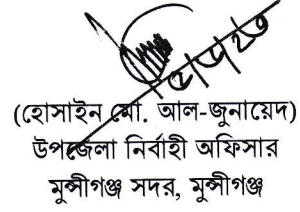 (হোসাইন মো. আল-জুনায়েদ)
উপজেলা নির্বাহী অফিসার
মুন্সীগঞ্জ সদর, মুন্সীগঞ্জ